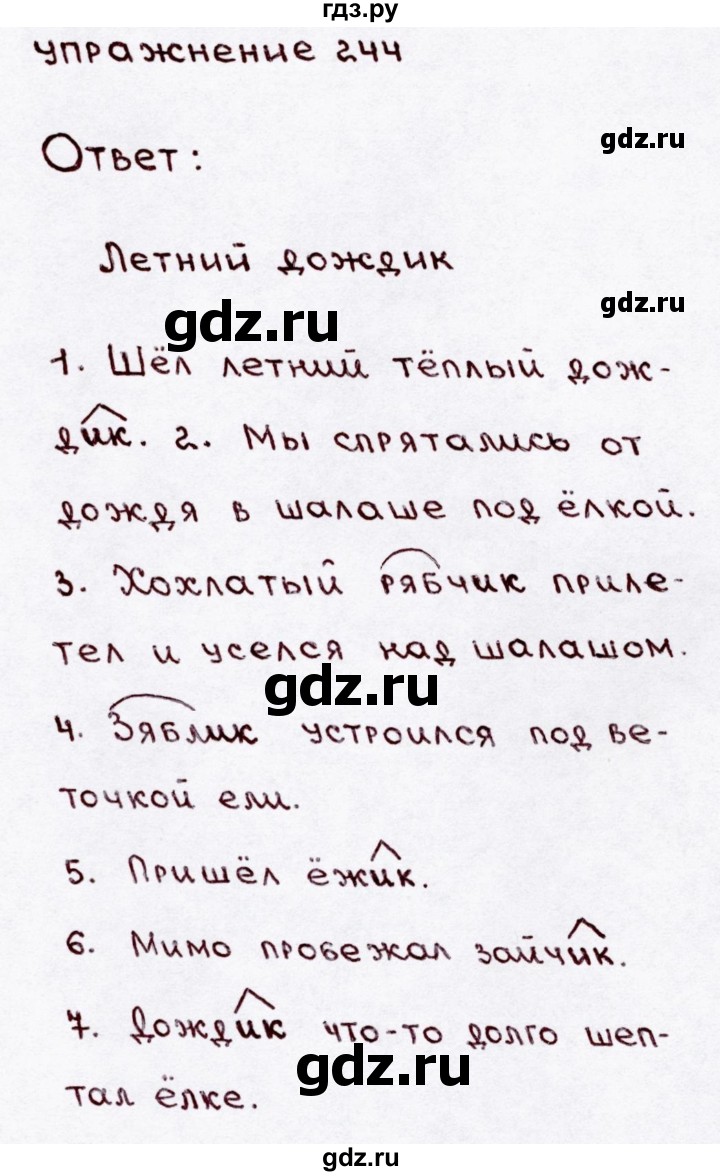 гдз.ру
упражнение 244
gdz.ru
Ответ:
Летний дождик
gdz.ru
gdz.ru
1. Шёл летний тёплый дож-
дик. 2. Мы спрятались от
дождя в шалаше под ёлкой.
3. Хохлатый рябчик приле-
тел и уселся над шалашом.
gdz.ru
4. Зяблик устроился под ве-
точкой ели.
5. Пришёл ёжик.
6. Мимо пробежал зайчик.
7. Дождик что-то долго шеп-
gdz.ru
тал ёлке.
gdz.ru